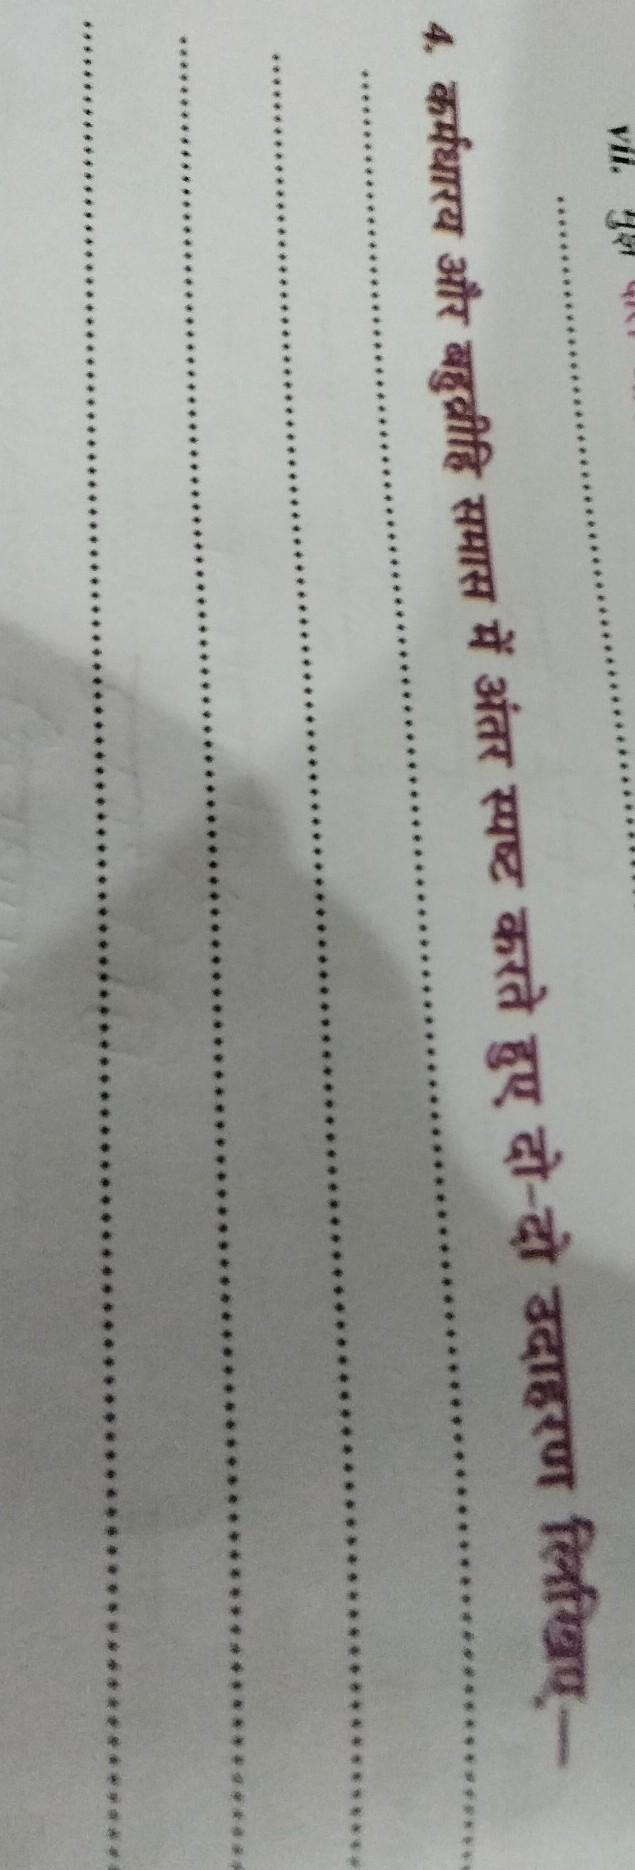 vii.
4. कर्मधारय और बहुव्रीहि समास में अंतर स्पष्ट करते हुए दो-दो उदाहरण लिखिए—